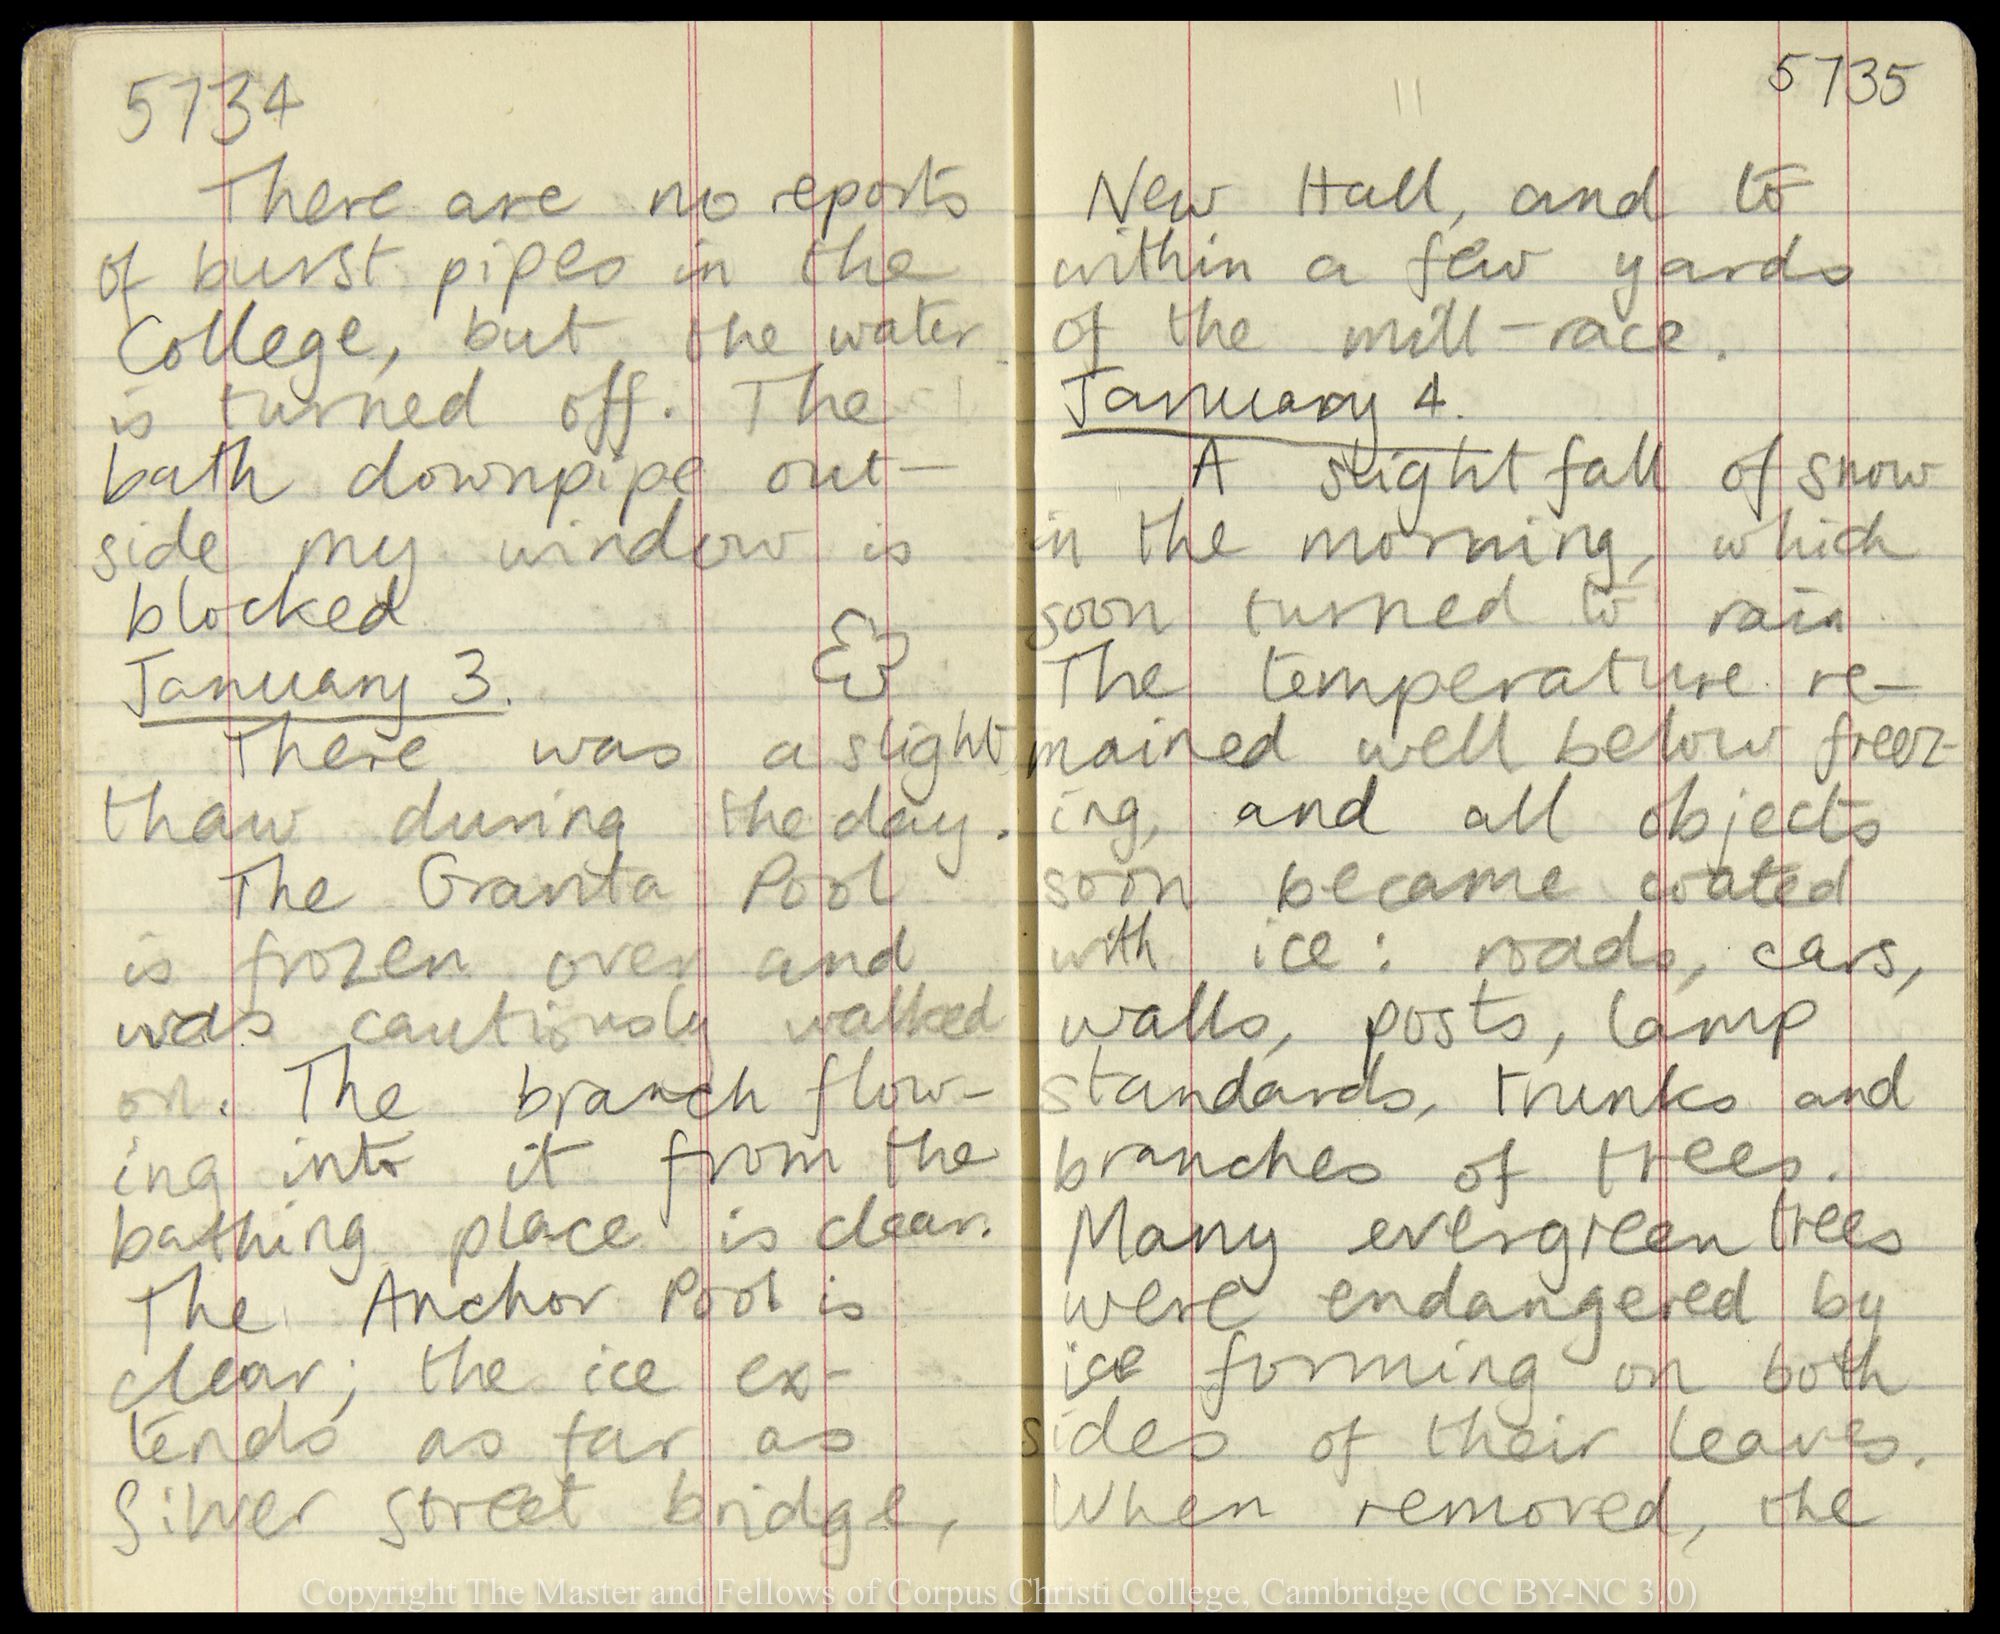 5734
There are no reports
of burst pipes in the
College, but the water
is turned off. The
bath downpipe out-
side my window is
blocked
January 3.
There was a slight
thaw during the day.
The Granta Pool
is frozen over and
was cautiously walked
on. The branch flow-
ing into it from the
bathing place is clear.
The Anchor Pool is
clear; the ice ex-
tends as far as
Silver Street bridge,
5735
New Hall, and to
within a few yards
of the mill-race.
January 4.
A slight fall of snow
in the morning, which
soon turned to rain
The temperature re-
mained well below freez-
ing, and all objects
soon became coated
with ice: roads, cars,
walls, posts, lamp
standards, trunks and
branches of trees.
Many evergreen trees
were endangered by
ice forming on both
sides of their leaves.
When removed, the
Copyright The Master and Fellows of Corpus Christi College, Cambridge (CC BY-NC 3.0)